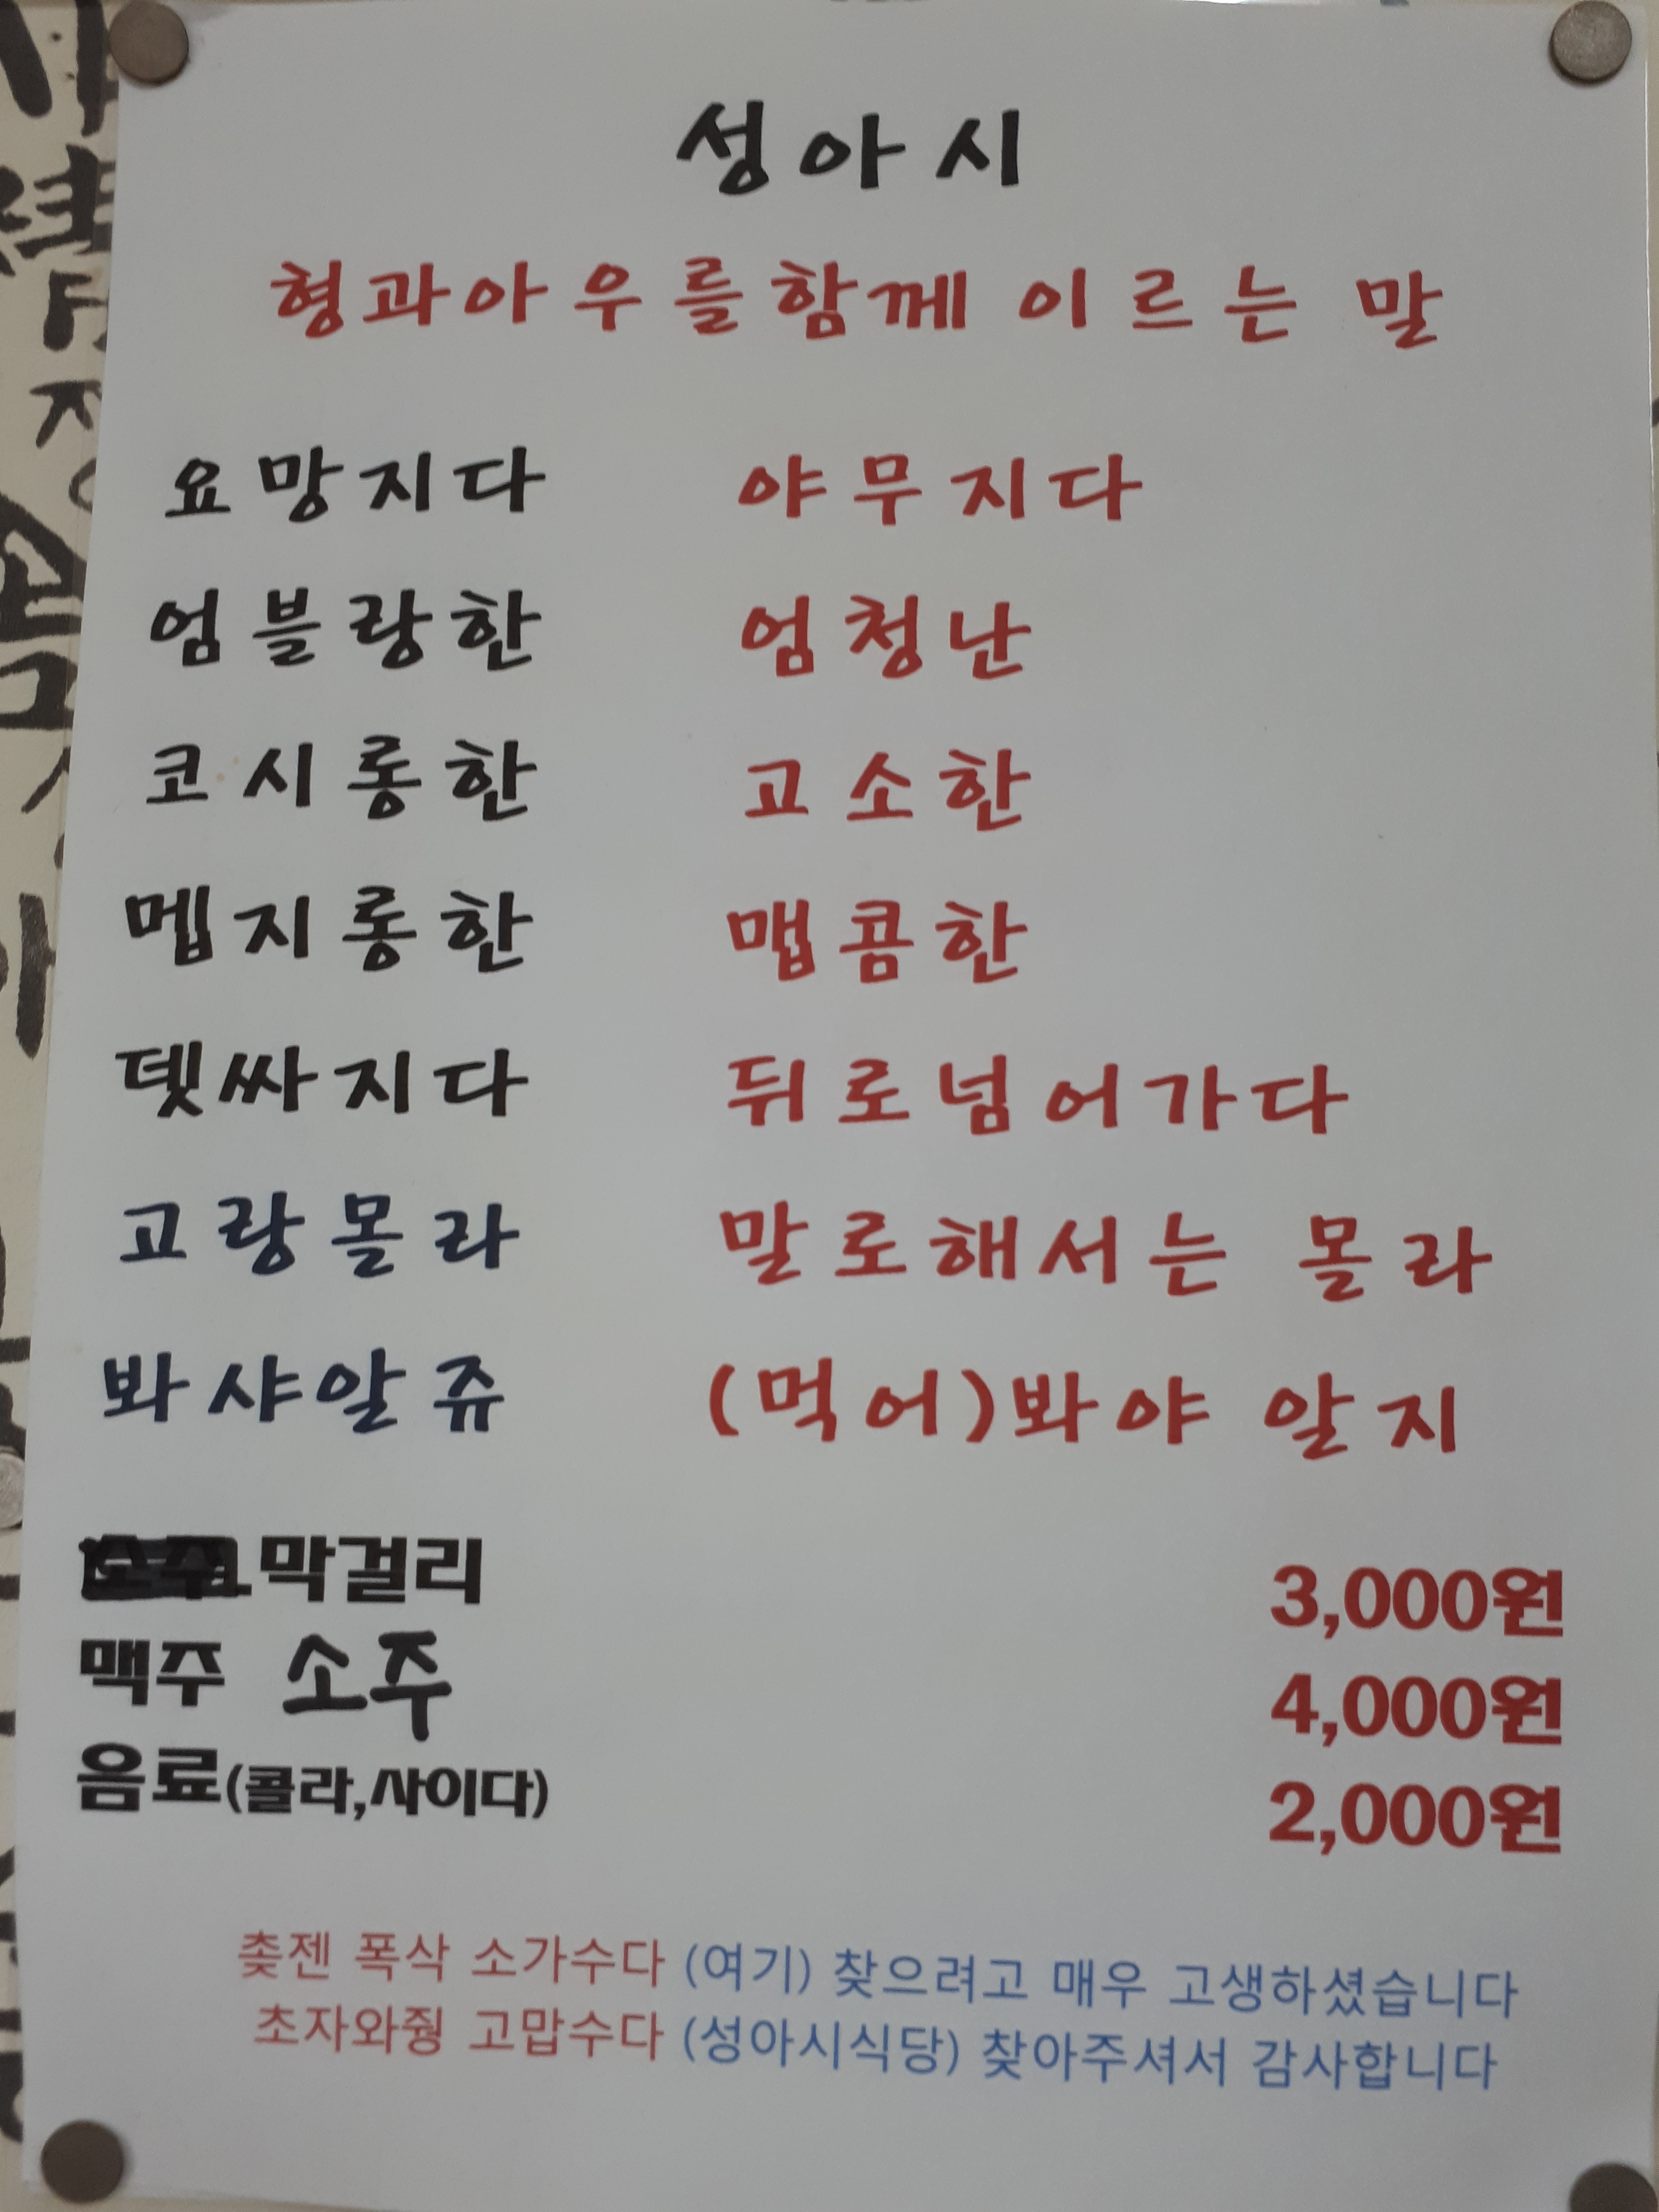 성아시
형과아우를함께 이르는 말
요망지다 야무지다
엄블랑한 엄청난
코시롱한 고소한
멥지롱한 맵콤한
뎃싸지다 뒤로넘어가다
고랑몰라 말로해서는 몰라
봐샤알쥬 (먹어)봐야 알지
막걸리 3,000원
맥주 소주 4,000원
음료(콜라,사이다) 2,000원
촞젠 폭삭 소가수다 (여기) 찾으려고 매우 고생하셨습니다
초자와줭 고맙수다 (성아시식당) 찾아주셔서 감사합니다